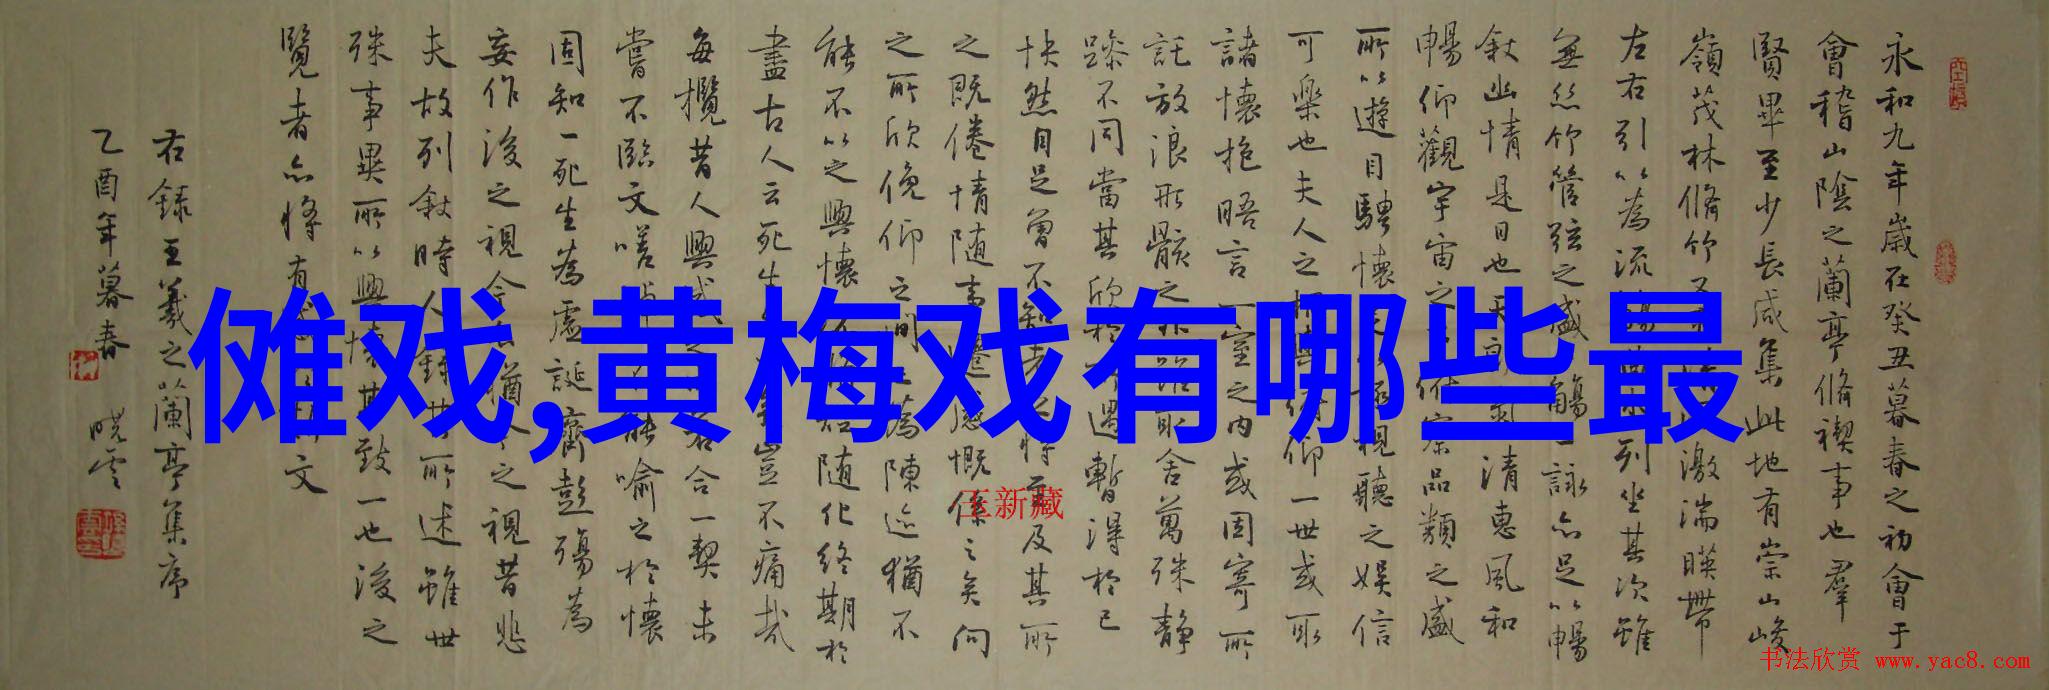 永和九年歲在癸丑暮春之初會于
會稽山陰之蘭亭脩禊事也羣
賢畢至少長咸集此地有崇山峻
嶺茂林脩竹又激湍暎帶
左右引以為流列坐其次雖
無絲竹管弦之盛觴一詠亦足以暢
敘幽情是日也天清惠風和
暢仰觀宇宙之品類之盛
所以遊目騁懷視聽之娛信
可樂也夫人之仰一世或取
諸懷抱晤言一室之內或因寄所
託放浪形骸之取舍萬殊靜
躁不同當其欣遇暫得於己
快然自足曾不知老之將至及其所
之既倦情隨事遷感慨係之矣向
之所欣俛仰之間為陳迹猶不
能不以之興懷隨化終期於
盡古人云死生豈不痛哉
每攬昔人興感合一契未
嘗不臨文嗟能喻之於懷
固知一死生為虛誕齊彭殤為
妄作後之視今之視昔悲
夫故列敘時人錄其所述雖世
殊事異所以興懷其致一也後之
覽者亦將有文
右錄王羲之蘭亭集序
乙酉年暮春 曉雲
傩戏,黄梅戏有哪些最
王新藏
书法欣赏 www.yac8.com